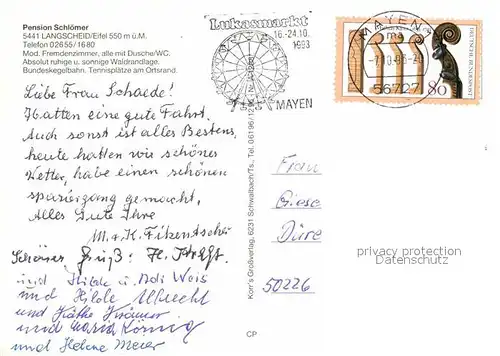 Pension Schlömer
5441 LANGSCHEID/Eifel 550 m ü.M.
Telefon 02655/1680
Mod. Fremdenzimmer, alle mit Dusche/WC.
Absolut ruhige u. sonnige Waldrandlage.
Bundeskegelbahn. Tennisplätze am Ortsrand.
Liebe Frau Schaede!
Hatten eine gute Fahrt.
Auch sonst ist alles Bestens,
heute hatten wir schönes
Wetter, habe einen schönen
spaziergang gemacht,
Alles Gute Ihre
M. + K. Fikentscher
Schöner Gruß: H.
und Hilde u. Adi Weis
und Hilde Albrecht
und Käthe Krämer
und Maria König
und Helene Meier
Lukasmarkt
16.-24.10.
1993
MAYEN
MAYEN
ma
56727
80
DEUTSCHE BUNDESPOST
Korr's Großverlag, 6231 Schwalbach/Ts., Tel. 06196/
CP
Frau
Giese
Düre
50226
privacy protection
Datenschutz